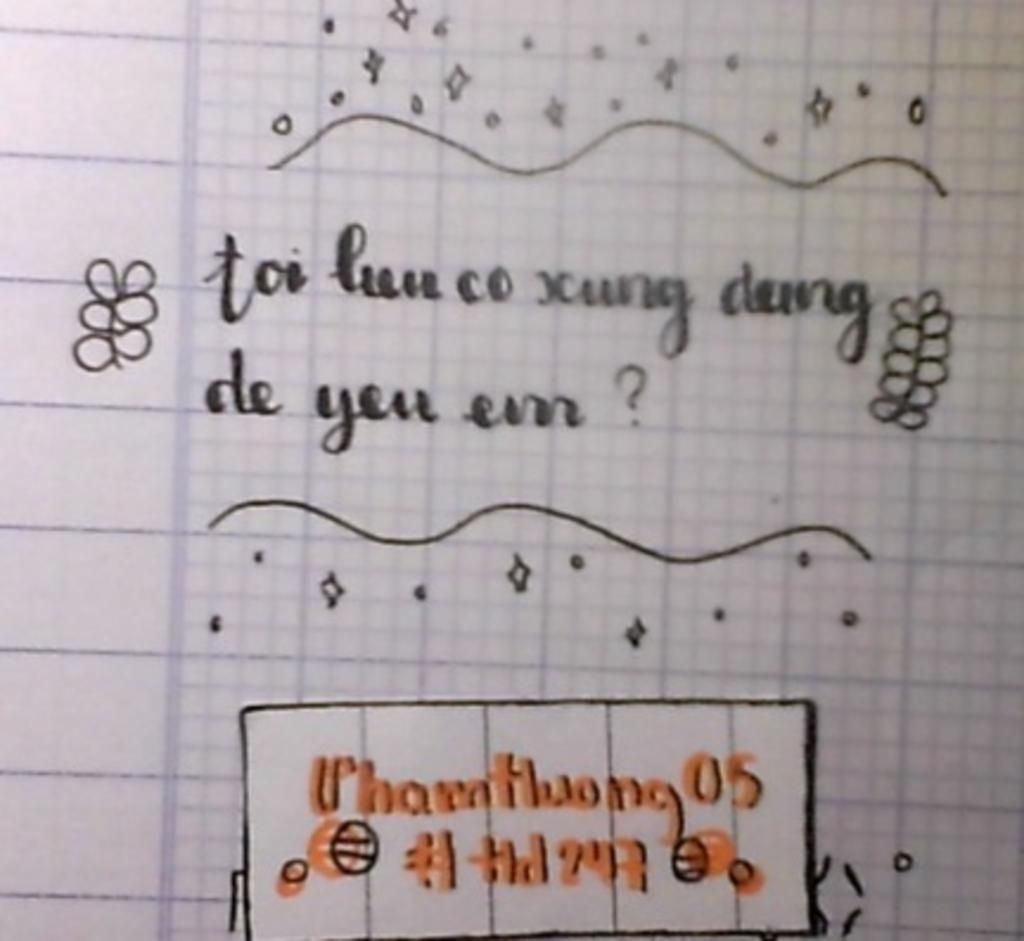 toi luu co xung dang
de yeu em ?
Phamthuong05
# tld247